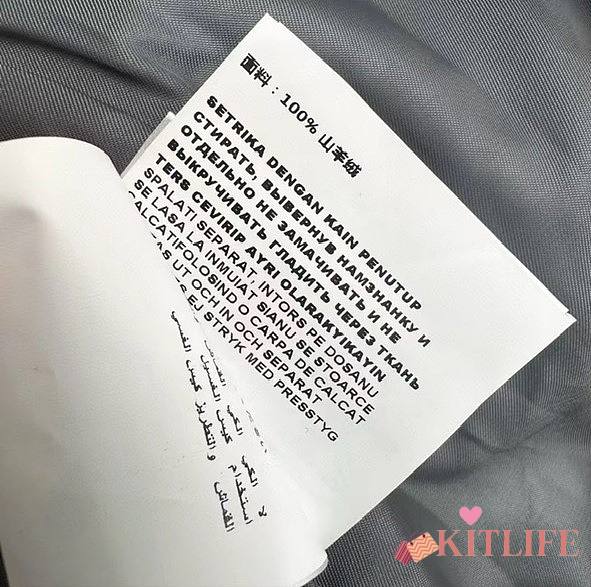 面料：100% 山羊绒
SETRIKA DENGAN KAIN PENUTUP
СТИРАТЬ, ВЫВЕРНУВ НАМЗНАНКУ И
ОТДЕЛЬНО НЕ ЗАМАЧИВАТЬ И НЕ
ВЫКРУЧИВАТЬ ГЛАДИТЬ ЧЕРЕЗ ТКАНЬ
TERS CEVIRIP AYRI OLARAKYIKAYIN
SPALATI SEPARAT, INTORS PE DOSANU
SE LASA LA INMUIAT SIANU SE STOARCE
CALCATIFOLOSIND O CARPA DE CALCAT
UT OCH IN OCH SEPARAT
EJ STRYK MED PRESSTYG
لا
استخدام
القماش
KITLIFE